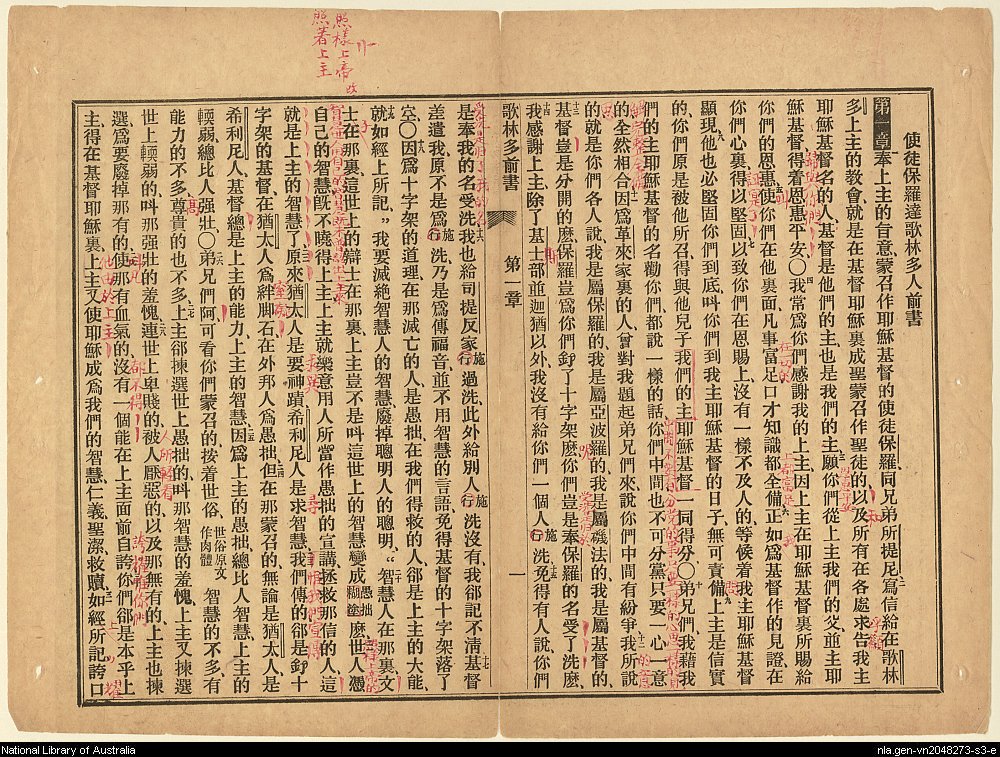 使徒保羅達歌林多人前書
第一章奉上主的旨意蒙召作耶穌基督的使徒保羅同兄弟所提尼寫信給在歌林
多上主的教會就是在基督耶穌裏成聖蒙召作聖徒的以及所有在各處求告我主
耶穌基督名的人基督是他們的主也是我們的主願你們從上主我們的父並主耶
穌基督得着恩惠平安、〇我常爲你們感謝我的上主因上主在耶穌基督裏所賜給
你們的恩惠使你們在他裏面凡事富足口才知識都全備正如爲基督作的見證在
你們心裏得以堅固以致你們在恩賜上沒有一樣不及人的等候着我主耶穌基督
顯現他也必堅固你們到底呌你們到我主耶穌基督的日子無可責備上主是信實
的、你們原是被他所召得與他兒子我們的主耶穌基督一同得分〇弟兄們我藉我
們的主耶穌基督的名勸你們都說一樣的話你們中間也不可分黨只要一心一意
的全然相合因爲革來家裏的人曾對我題起弟兄們來說你們中間有紛爭我所說
的就是你們各人說我是屬保羅的我是屬亞波羅的我是屬磯法的我是屬基督的、
基督豈是分開的麽保羅豈爲你們釘了十字架麽你們豈是奉保羅的名受了洗麽、
我感謝上主除了基士部並迦猶以外我沒有給你們一個人施行洗免得有人說你們
歌林多前書 第一章 一
是奉我的名受洗我也給司提反家施行過洗此外給別人施行洗沒有我卻記不清基督
差遣我原不是爲施行洗乃是爲傳福音並不用智慧的言語免得基督的十字架落了
空、〇因爲十字架的道理在那滅亡的人是愚拙在我們得救的人卻是上主的大能、
就如經上所記我要滅絕智慧人的智慧廢掉聰明人的聰明、智慧人在那裏文
士在那裏這世上的辯士在那裏上主豈不是呌這世上的智慧變成愚拙糊塗麽世人憑
自己的智慧旣不曉得上主上主就樂意用人所當作愚拙的宣講拯救那信的人、這
就是上主的智慧了原來猶太人是要神蹟希利尼人是求智慧我們傳的卻是釘十
字架的基督在猶太人爲絆脚石在外邦人爲愚拙但在那蒙召的無論是猶太人是
希利尼人基督總是上主的能力上主的智慧因爲上主的愚拙總比人智慧上主的
輭弱總比人强壯〇弟兄們阿可看你們蒙召的按着世俗世俗原文作肉體智慧的不多有
能力的不多尊貴的也不多上主卻揀選世上愚拙的呌那智慧的羞愧上主又揀選
世上輭弱的呌那强壯的羞愧連世上卑賤的被人厭惡的以及那無有的上主也揀
選爲要廢掉那有的使那有血氣的沒有一個能在上主面前自誇你們卻是本乎上
主得在基督耶穌裏上主又使耶穌成爲我們的智慧仁義聖潔救贖如經所記誇口
照樣上帝改
照著上主
National Library of Australia
nla.gen-vn2048273-s3-e